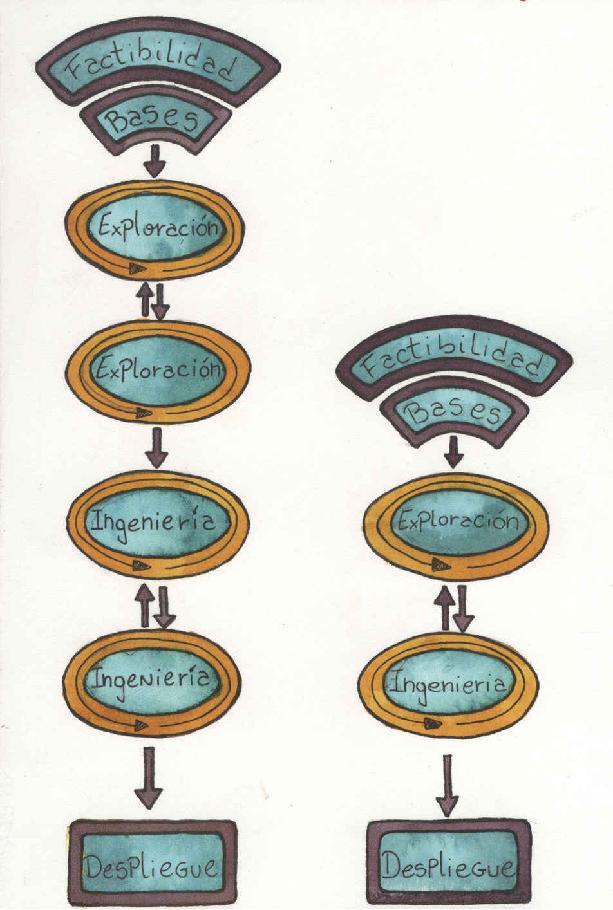 Factibilidad
Bases
Exploración
Exploración
Ingeniería
Ingeniería
Despliegue
Factibilidad
Bases
Exploración
Ingenieria
Despliegue